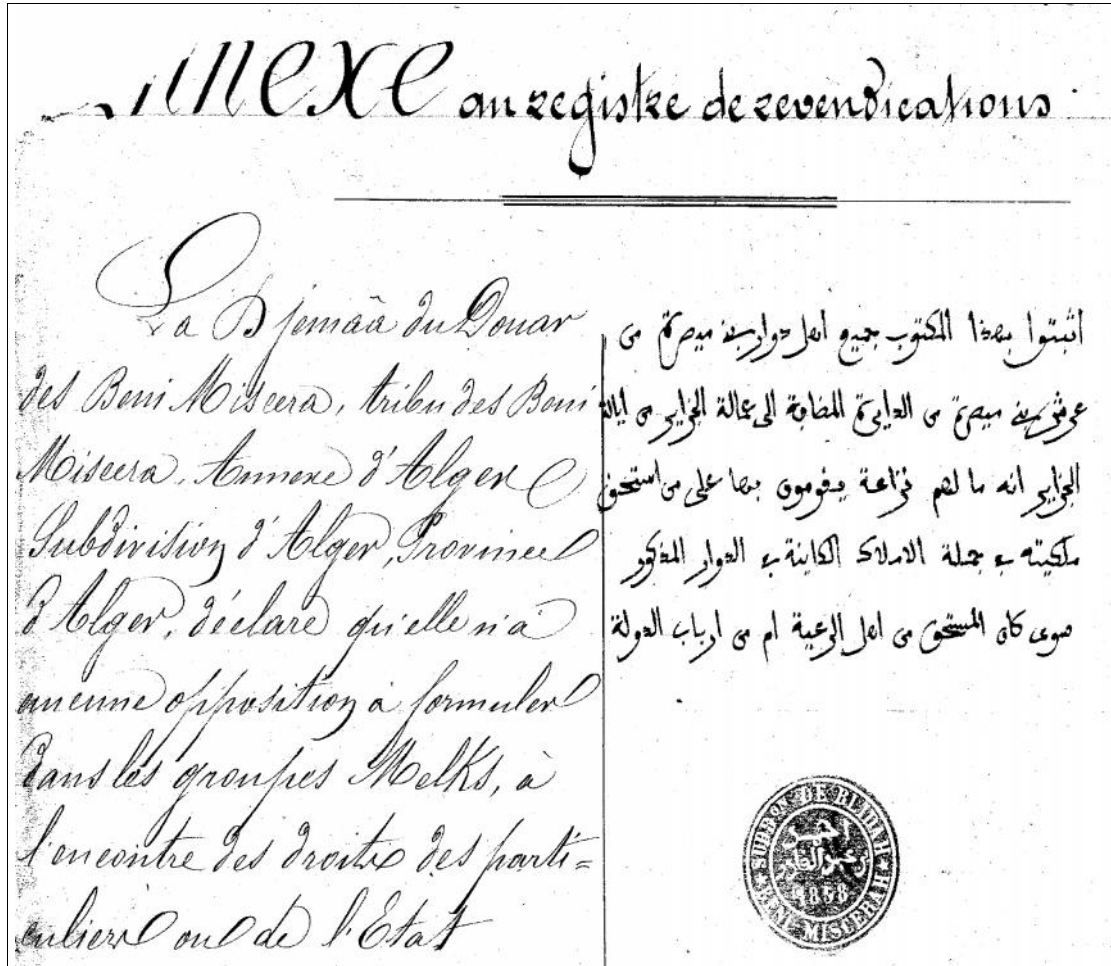 Annexe au registre de revendications
La Djemâa du Douar
des Beni Miscera, tribu des Beni
Miscera, Annexe d'Alger
Subdivision d'Alger, Province
d'Alger, déclare qu'elle n'a
aucune opposition à formuler
dans les groupes Melks, à
l'encontre des droits des parti=
culiers ou de l'Etat
اثبتوا بهذا المكتوب جميع اهل دوار بنے ميصرة من
عرش بنے ميصرة من الدايرة المضافة الى عمالة الجزاير من ايالة
الجزاير انه ما لهم نزاعة يقومون بها على من استحق
ملكيته بے جملة الاملاك الكاينة بے الدوار المذكور
صوى كان المستحق من اهل الرعية ام من ارباب الدولة
SUBDON DE BLIDAH
احمد
1858
BENI MISCERAH